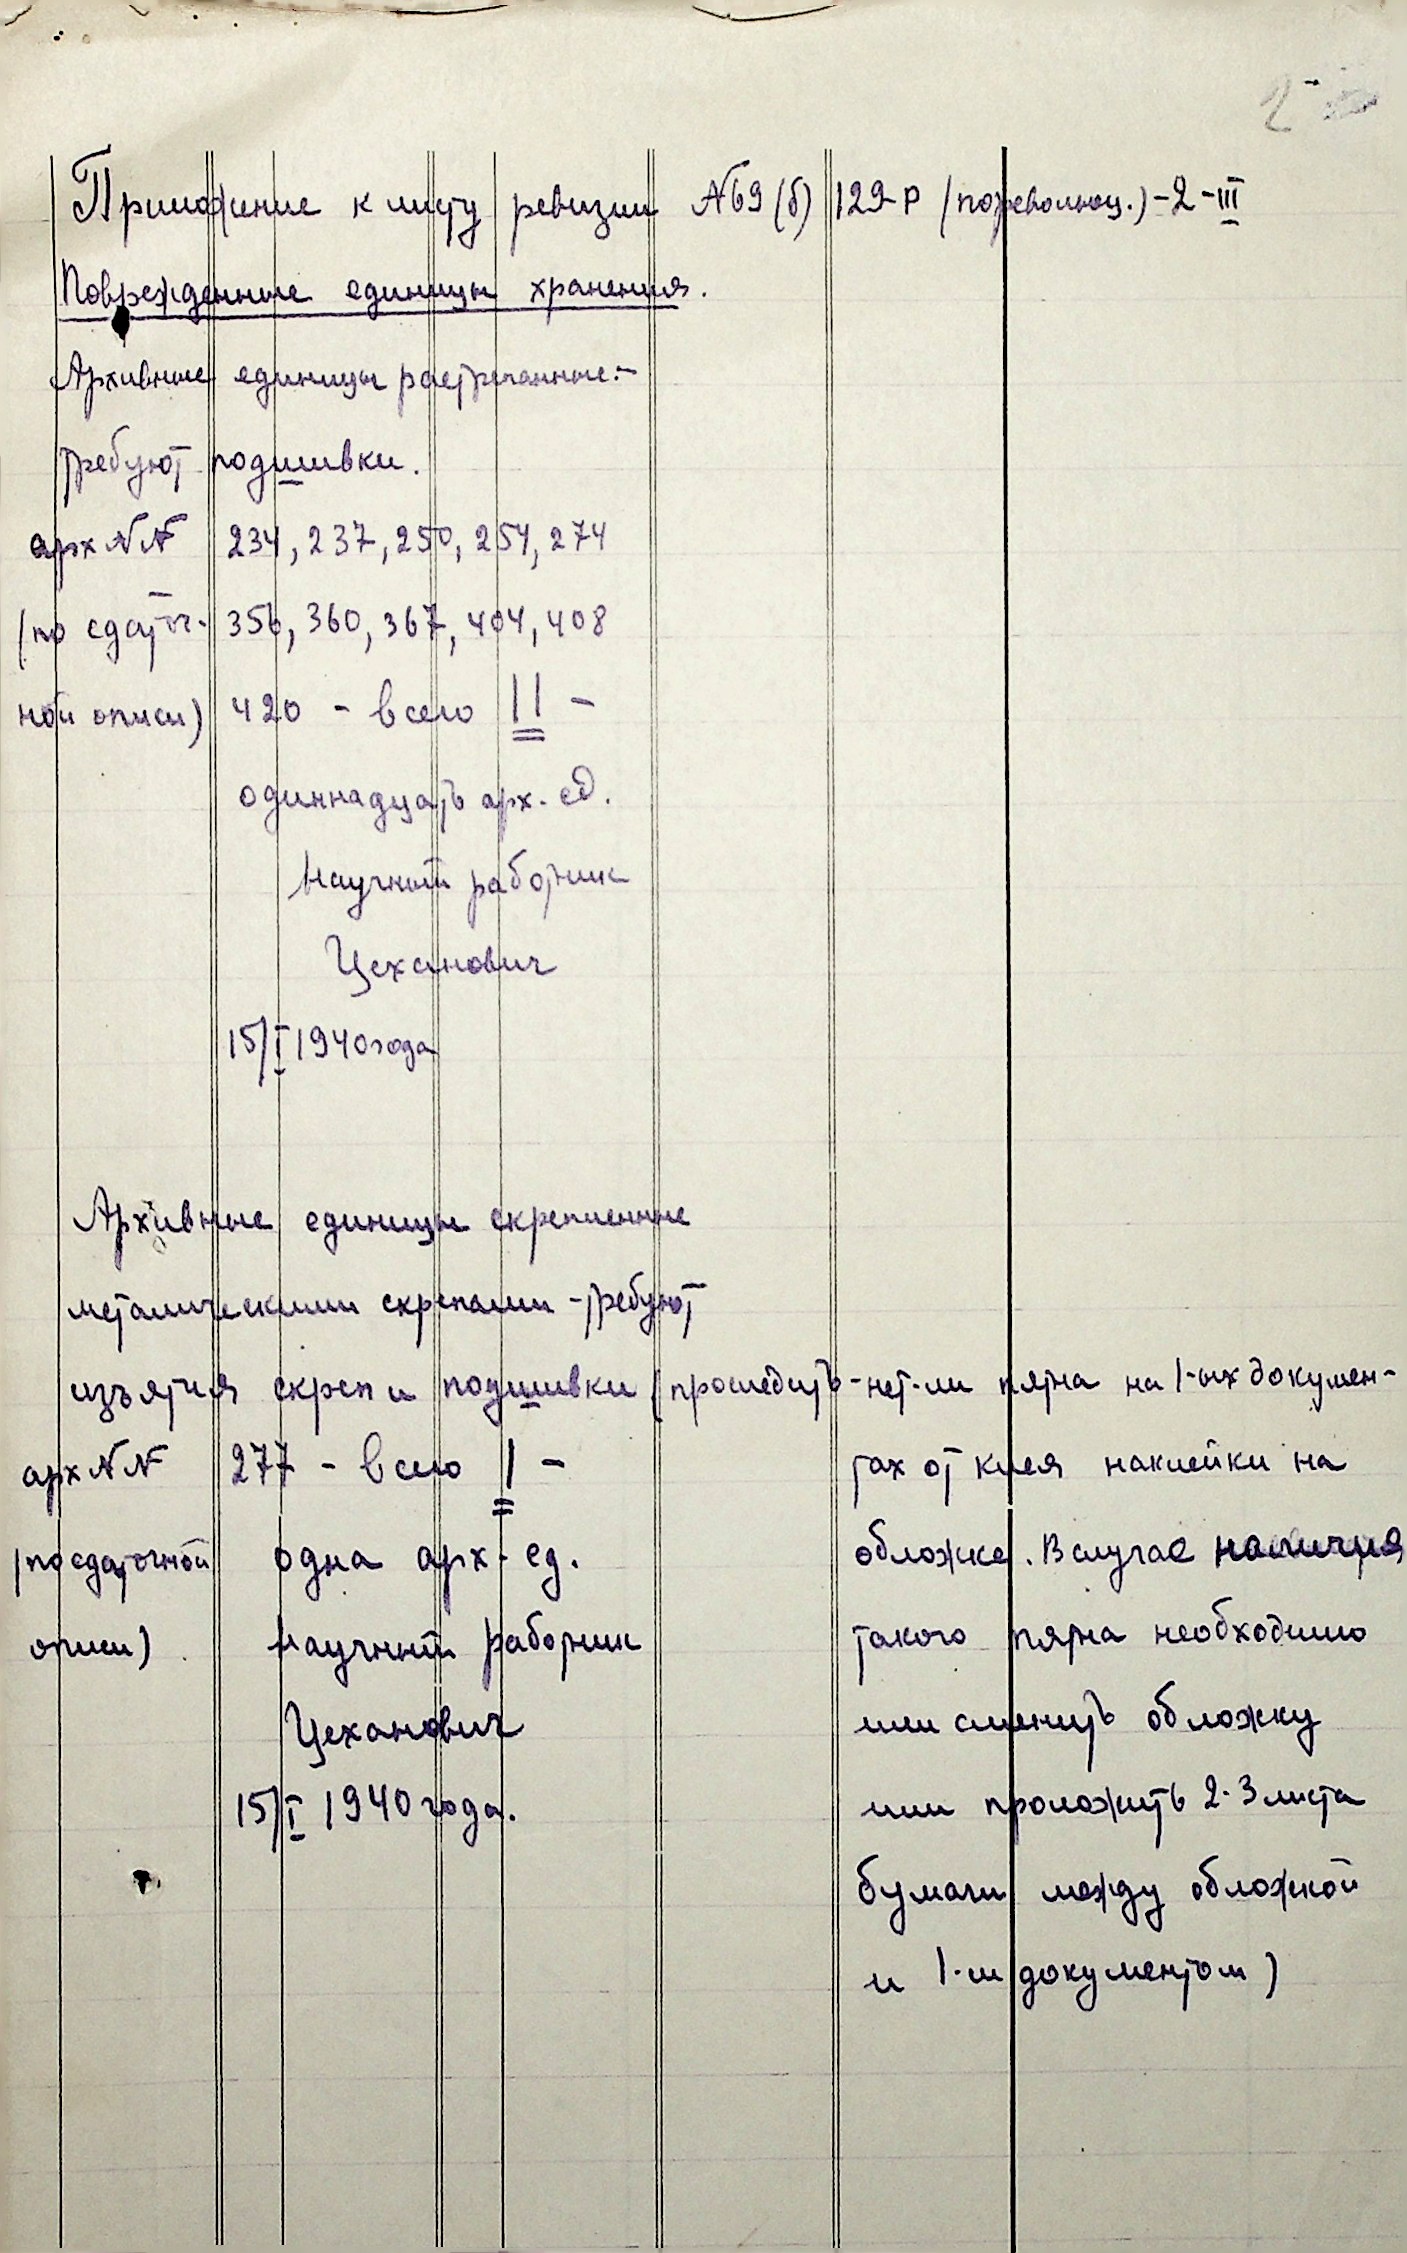 2
Приложение к листу ревизии №69 (б) 129-Р (пореволюц.) - 2 - III
Поврежденные единицы хранения.
Архивные единицы растрепанные:-
требуют подшивки.
арх №№ 234, 237, 250, 254, 274
(по сдаточ- 356, 360, 367, 404, 408
ной описи) 420 - всего 11 -
одиннадцать арх. ед.
Научный работник
Цеханович
15/I 1940 года
Архивные единицы скрепленные
металическими скрепами - требуют
изъятия скреп и подшивки (проследить - нет-ли пятна на 1-ых докумен-
арх №№ 277 - всего 1 - тах от клея наклейки на
(по сдаточной одна арх. ед. обложке. В случае наличия
описи) Научный работник такого пятна необходимо
Цеханович или сменить обложку
15/I 1940 года. или проложить 2-3 листа
бумаги между обложкой
и 1-м документом)